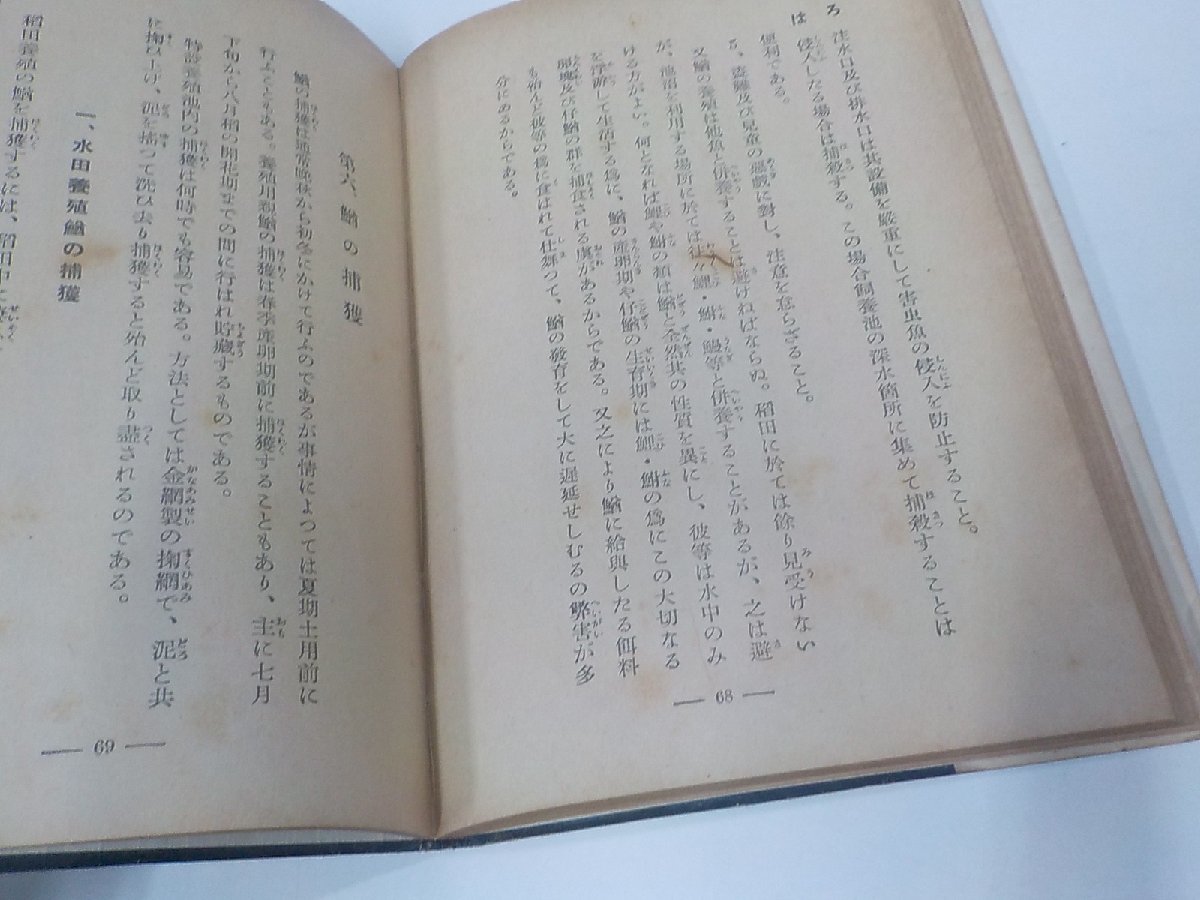 ろ 注水口及び排水口は其設備を嚴重にして害虫魚の侵入を防止すること。
は 侵入したる場合は捕殺する。この場合飼養池の深水箇所に集めて捕殺することは
便利である。
る、盗難及び兒童の惡戲に對し、注意を怠らざること。
又鰌の養殖は他魚と併養することは避けねばならぬ。稻田に於ては餘り見受けない
が、池沼を利用する場所に於ては往々鯉・鮒・鰻等と併養することがあるが、之は避
ける方がよい。何となれば鯉や鮒の類は鰌と全然其の性質を異にし、彼等は水中のみ
を浮游して生活する爲に、鰌の産卵期や仔鰌の生育期には鯉・鮒の爲にこの大切なる
卵塊及び仔鰌の群を捕食される虞があるからである。又之により鰌に給與したる餌料
も殆んど彼等の爲に食はれて仕舞つて、鰌の發育をして大に遲延せしむるの弊害が多
分にあるからである。
— 68 —
第六、鰌の捕獲
鰌の捕獲は通常晩秋から初冬にかけて行ふのであるが事情によつては夏期土用前に
行ふこともある。養殖用種鰌の捕獲は春季産卵期前に捕獲することもあり、主に七月
下旬から八月稻の開花期までの間に行はれ貯藏するものである。
特設養殖池内の捕獲は何時でも容易である。方法としては金網製の掬網で、泥と共
に掬ひ上げ、泥を捕つて洗ひ去り捕獲すると殆んど取り盡されるのである。
一、水田養殖鰌の捕獲
稻田養殖の鰌を捕獲するには、稻田中に
— 69 —